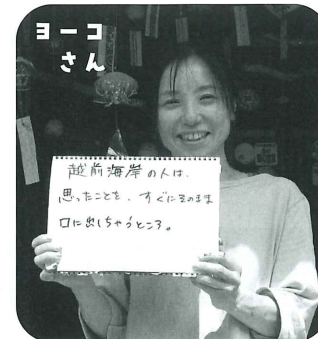 ヨーコ
さん
越前海岸の人は、
思ったことを、すぐにそのまま
口に出しちゃうところ。